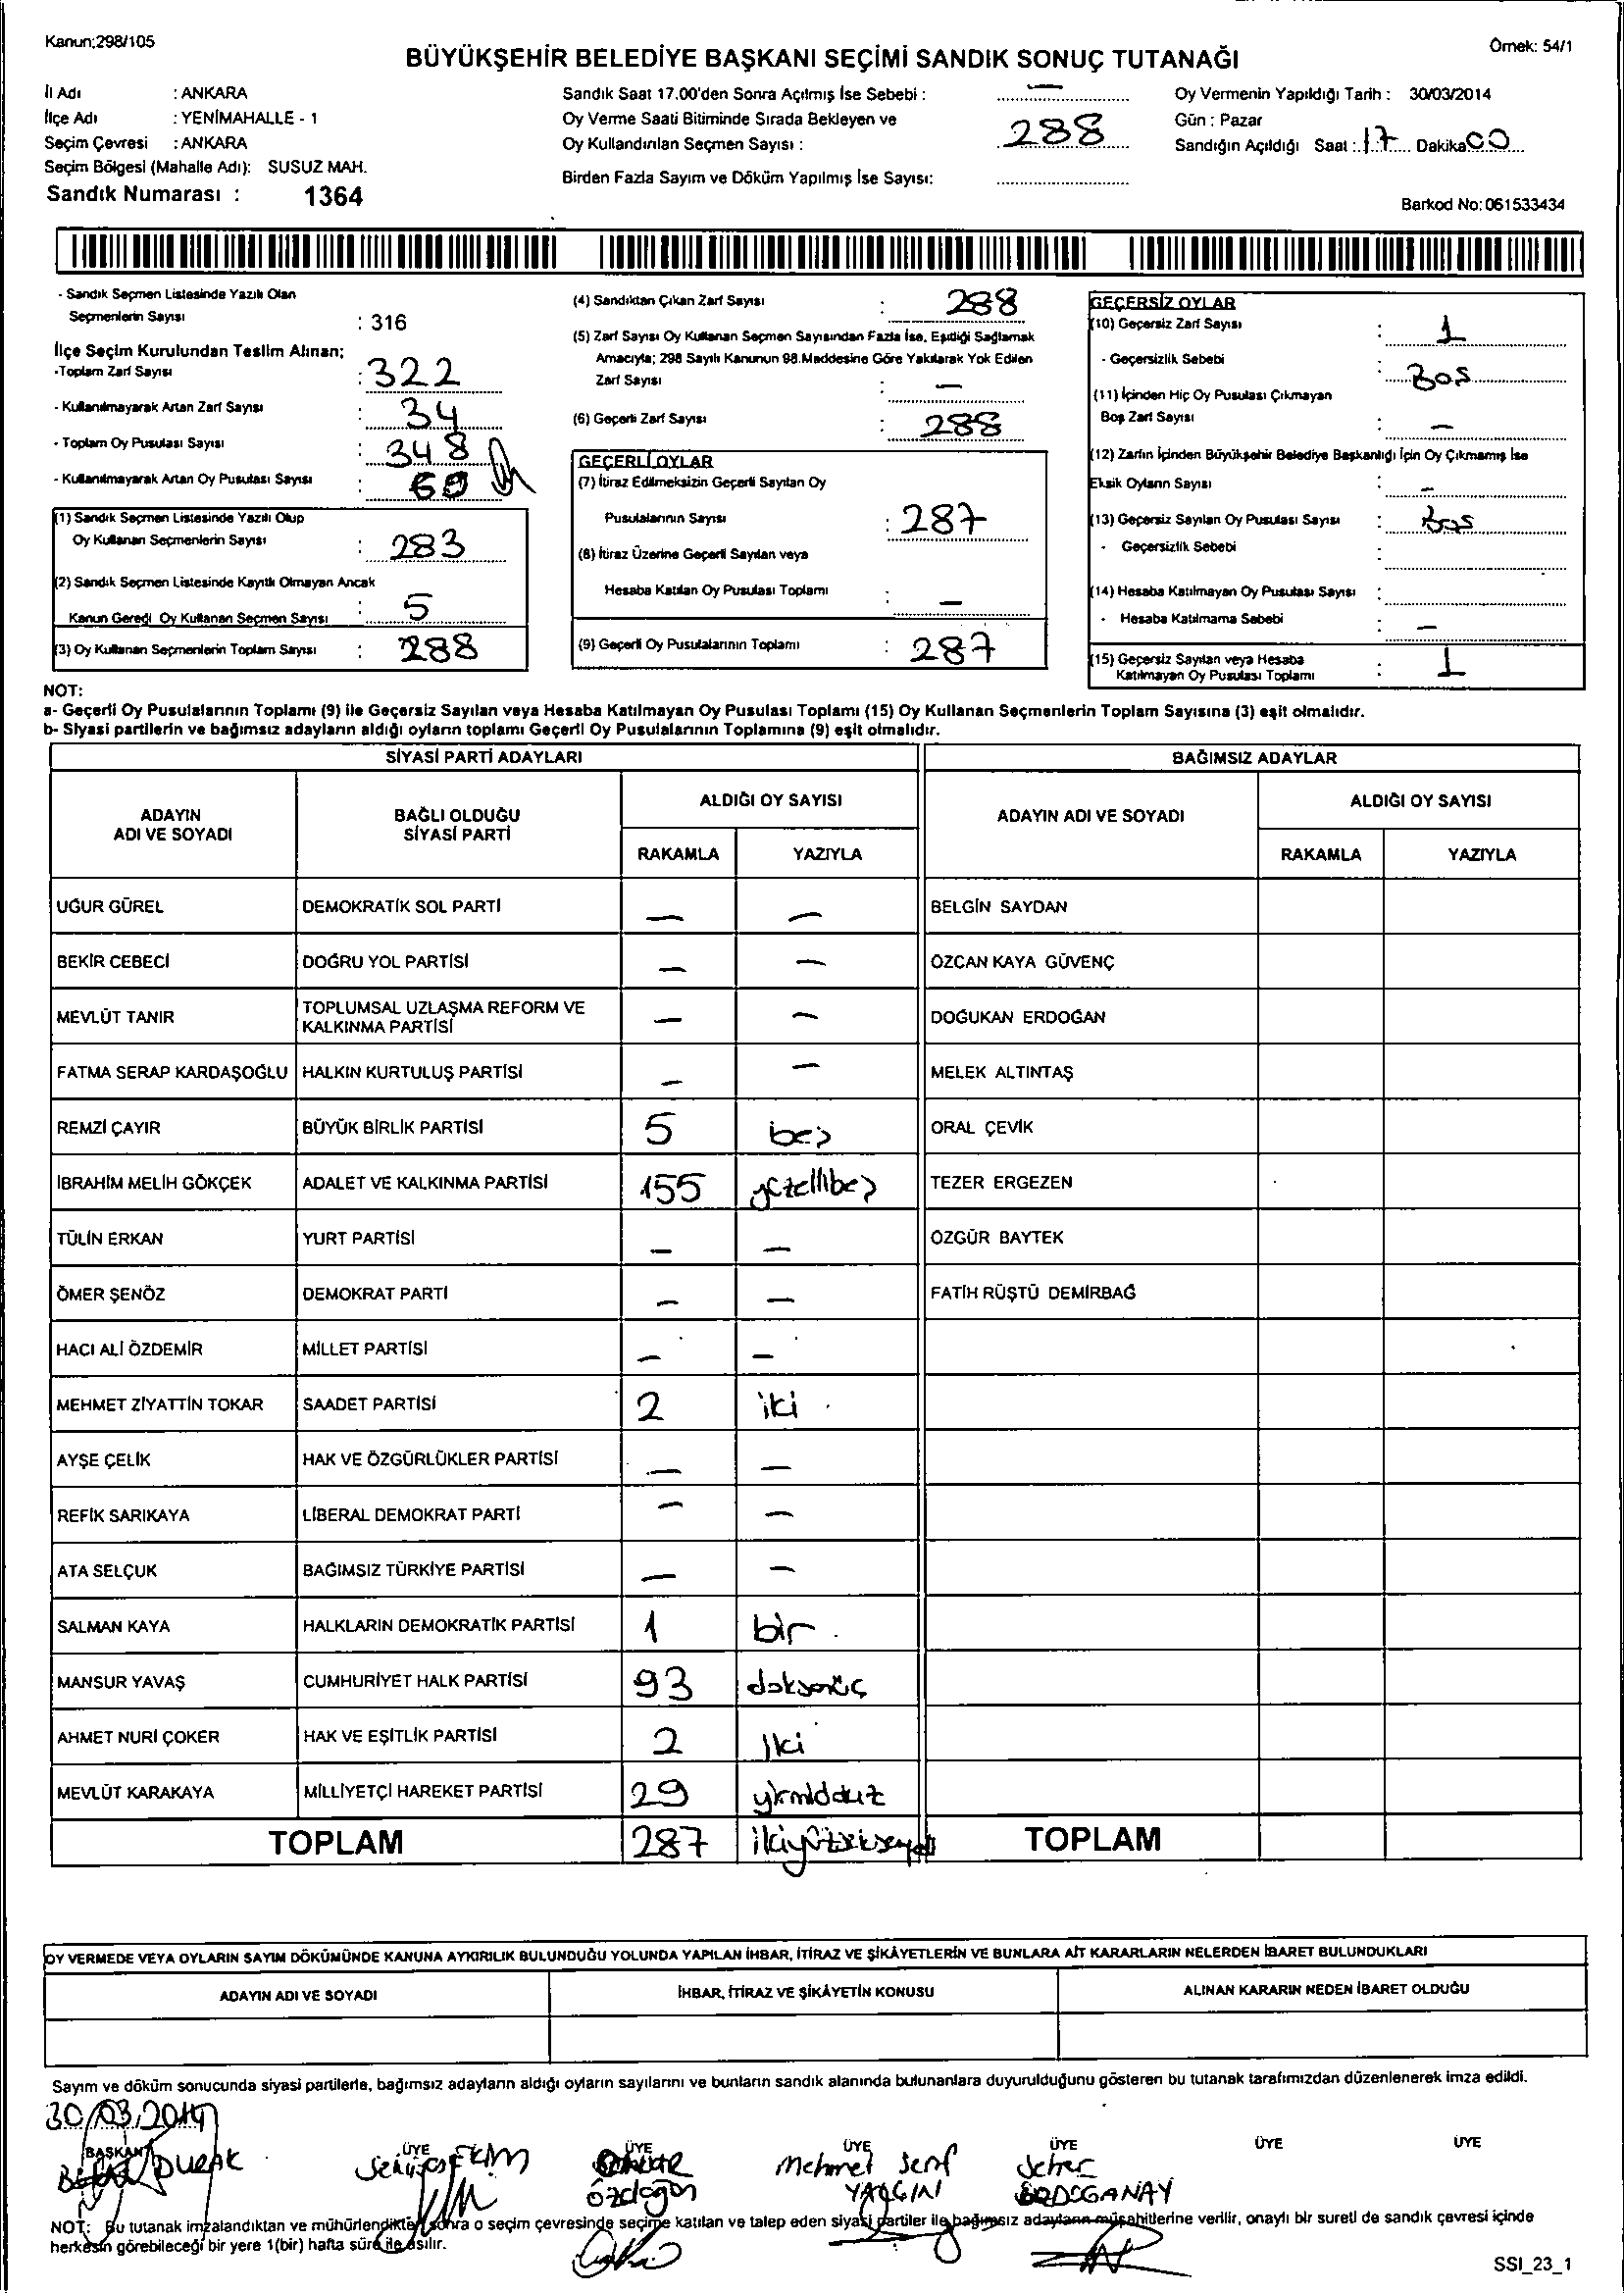 Kanun;298/105
Örnek: 54/1
BÜYÜKŞEHİR BELEDİYE BAŞKANI SEÇİMİ SANDIK SONUÇ TUTANAĞI
İl Adı : ANKARA
İlçe Adı : YENİMAHALLE - 1
Seçim Çevresi : ANKARA
Seçim Bölgesi (Mahalle Adı): SUSUZ MAH.
Sandık Numarası : 1364
Sandık Saat 17.00'den Sonra Açılmış İse Sebebi : —
Oy Verme Saati Bitiminde Sırada Bekleyen ve
Oy Kullandırılan Seçmen Sayısı : 288
Birden Fazla Sayım ve Döküm Yapılmış İse Sayısı:
Oy Vermenin Yapıldığı Tarih : 30/03/2014
Gün : Pazar
Sandığın Açıldığı Saat : 17 Dakika 00
Barkod No: 061533434
- Sandık Seçmen Listesinde Yazılı Olan
Seçmenlerin Sayısı : 316
İlçe Seçim Kurulundan Teslim Alınan;
-Toplam Zarf Sayısı : 322
- Kullanılmayarak Artan Zarf Sayısı : 34
- Toplam Oy Pusulası Sayısı : 348
- Kullanılmayarak Artan Oy Pusulası Sayısı : 60
(1) Sandık Seçmen Listesinde Yazılı Olup
Oy Kullanan Seçmenlerin Sayısı : 283
(2) Sandık Seçmen Listesinde Kayıtlı Olmayan Ancak
Kanun Gereği Oy Kullanan Seçmen Sayısı : 5
(3) Oy Kullanan Seçmenlerin Toplam Sayısı : 288
(4) Sandıktan Çıkan Zarf Sayısı : 288
(5) Zarf Sayısı Oy Kullanan Seçmen Sayısından Fazla İse, Eşitliği Sağlamak
Amacıyla; 298 Sayılı Kanunun 98.Maddesine Göre Yakılarak Yok Edilen
Zarf Sayısı : —
(6) Geçerli Zarf Sayısı : 288
GEÇERLİ OYLAR
(7) İtiraz Edilmeksizin Geçerli Sayılan Oy
Pusulalarının Sayısı : 287
(8) İtiraz Üzerine Geçerli Sayılan veya
Hesaba Katılan Oy Pusulası Toplamı : —
(9) Geçerli Oy Pusulalarının Toplamı : 287
GEÇERSİZ OYLAR
(10) Geçersiz Zarf Sayısı : 1
- Geçersizlik Sebebi : Boş
(11) İçinden Hiç Oy Pusulası Çıkmayan
Boş Zarf Sayısı : —
(12) Zarfın İçinden Büyükşehir Belediye Başkanlığı İçin Oy Çıkmamış İse
Eksik Oyların Sayısı : —
(13) Geçersiz Sayılan Oy Pusulası Sayısı : Boş
- Geçersizlik Sebebi :
(14) Hesaba Katılmayan Oy Pusulası Sayısı :
- Hesaba Katılmama Sebebi : —
(15) Geçersiz Sayılan veya Hesaba
Katılmayan Oy Pusulası Toplamı : 1
NOT:
a- Geçerli Oy Pusulalarının Toplamı (9) ile Geçersiz Sayılan veya Hesaba Katılmayan Oy Pusulası Toplamı (15) Oy Kullanan Seçmenlerin Toplam Sayısına (3) eşit olmalıdır.
b- Siyasi partilerin ve bağımsız adayların aldığı oyların toplamı Geçerli Oy Pusulalarının Toplamına (9) eşit olmalıdır.
SİYASİ PARTİ ADAYLARI
BAĞIMSIZ ADAYLAR
ADAYIN
ADI VE SOYADI
BAĞLI OLDUĞU
SİYASİ PARTİ
ALDIĞI OY SAYISI
RAKAMLA YAZIYLA
ADAYIN ADI VE SOYADI
ALDIĞI OY SAYISI
RAKAMLA YAZIYLA
UĞUR GÜREL DEMOKRATİK SOL PARTİ — — BELGİN SAYDAN
BEKİR CEBECİ DOĞRU YOL PARTİSİ — — ÖZCAN KAYA GÜVENÇ
MEVLÜT TANIR TOPLUMSAL UZLAŞMA REFORM VE
KALKINMA PARTİSİ — — DOĞUKAN ERDOĞAN
FATMA SERAP KARDAŞOĞLU HALKIN KURTULUŞ PARTİSİ — — MELEK ALTINTAŞ
REMZİ ÇAYIR BÜYÜK BİRLİK PARTİSİ 5 beş ORAL ÇEVİK
İBRAHİM MELİH GÖKÇEK ADALET VE KALKINMA PARTİSİ 155 yüzellibeş TEZER ERGEZEN
TÜLİN ERKAN YURT PARTİSİ — — ÖZGÜR BAYTEK
ÖMER ŞENÖZ DEMOKRAT PARTİ — — FATİH RÜŞTÜ DEMİRBAĞ
HACI ALİ ÖZDEMİR MİLLET PARTİSİ — —
MEHMET ZİYATTİN TOKAR SAADET PARTİSİ 2 iki
AYŞE ÇELİK HAK VE ÖZGÜRLÜKLER PARTİSİ — —
REFİK SARIKAYA LİBERAL DEMOKRAT PARTİ — —
ATA SELÇUK BAĞIMSIZ TÜRKİYE PARTİSİ — —
SALMAN KAYA HALKLARIN DEMOKRATİK PARTİSİ 1 bir
MANSUR YAVAŞ CUMHURİYET HALK PARTİSİ 93 doksanüç
AHMET NURİ ÇOKER HAK VE EŞİTLİK PARTİSİ 2 İki
MEVLÜT KARAKAYA MİLLİYETÇİ HAREKET PARTİSİ 29
TOPLAM 287 ikiyüzseksenyedi TOPLAM
OY VERMEDE VEYA OYLARIN SAYIM DÖKÜMÜNDE KANUNA AYKIRILIK BULUNDUĞU YOLUNDA YAPILAN İHBAR, İTİRAZ VE ŞİKÂYETLERİN VE BUNLARA AİT KARARLARIN NELERDEN İBARET BULUNDUKLARI
ADAYIN ADI VE SOYADI İHBAR, İTİRAZ VE ŞİKÂYETİN KONUSU ALINAN KARARIN NEDEN İBARET OLDUĞU
Sayım ve döküm sonucunda siyasi partilerle, bağımsız adayların aldığı oyların sayılarını ve bunların sandık alanında bulunanlara duyurulduğunu gösteren bu tutanak tarafımızdan düzenlenerek imza edildi.
30/03/2014
BAŞKAN ÜYE ÜYE ÜYE ÜYE ÜYE ÜYE
DURAK EKİM Mehmet Şerif
özdoğan YALÇIN ERDOĞANAY
NOT: Bu tutanak imzalandıktan ve mühürlendikten sonra o seçim çevresinde seçime katılan ve talep eden siyasi partiler ile bağımsız adayların müşahitlerine verilir, onaylı bir sureti de sandık çevresi içinde
herkesin görebileceği bir yere 1(bir) hafta süre ile asılır.
SSI_23_1